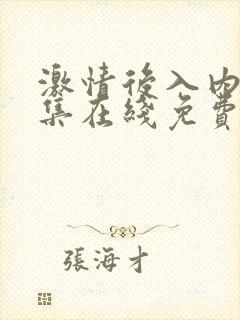 激情后入内
集在綫免費
張海才